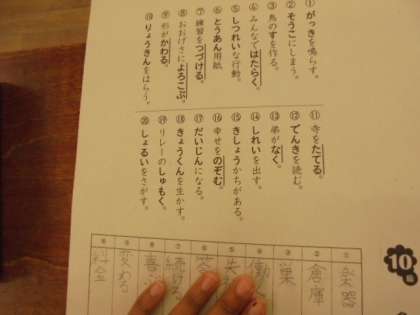 ① がっきを鳴らす。
② そうこにしまう。
③ 鳥のすを作る。
④ みんなではたらく。
⑤ しつれいな行動。
⑥ とうあん用紙
⑦ 練習をつづける。
⑧ おおげさによろこぶ。
⑨ 形がかわる。
⑩ りょうきんをはらう。
⑪ 寺をたてる。
⑫ でんきを読む。
⑬ 弟がなく。
⑭ しれいを出す。
⑮ きしょうかちがある。
⑯ 幸せをのぞむ。
⑰ だいじんになる。
⑱ きょうくんを生かす。
⑲ リレーのしゅもく。
⑳ しょるいをさがす。
10
① 楽器
② 倉庫
③ 巣
④ 働
⑤ 失
⑥ 答
⑦ 続ける
⑧ 喜
⑨ 変わる
⑩ 料金